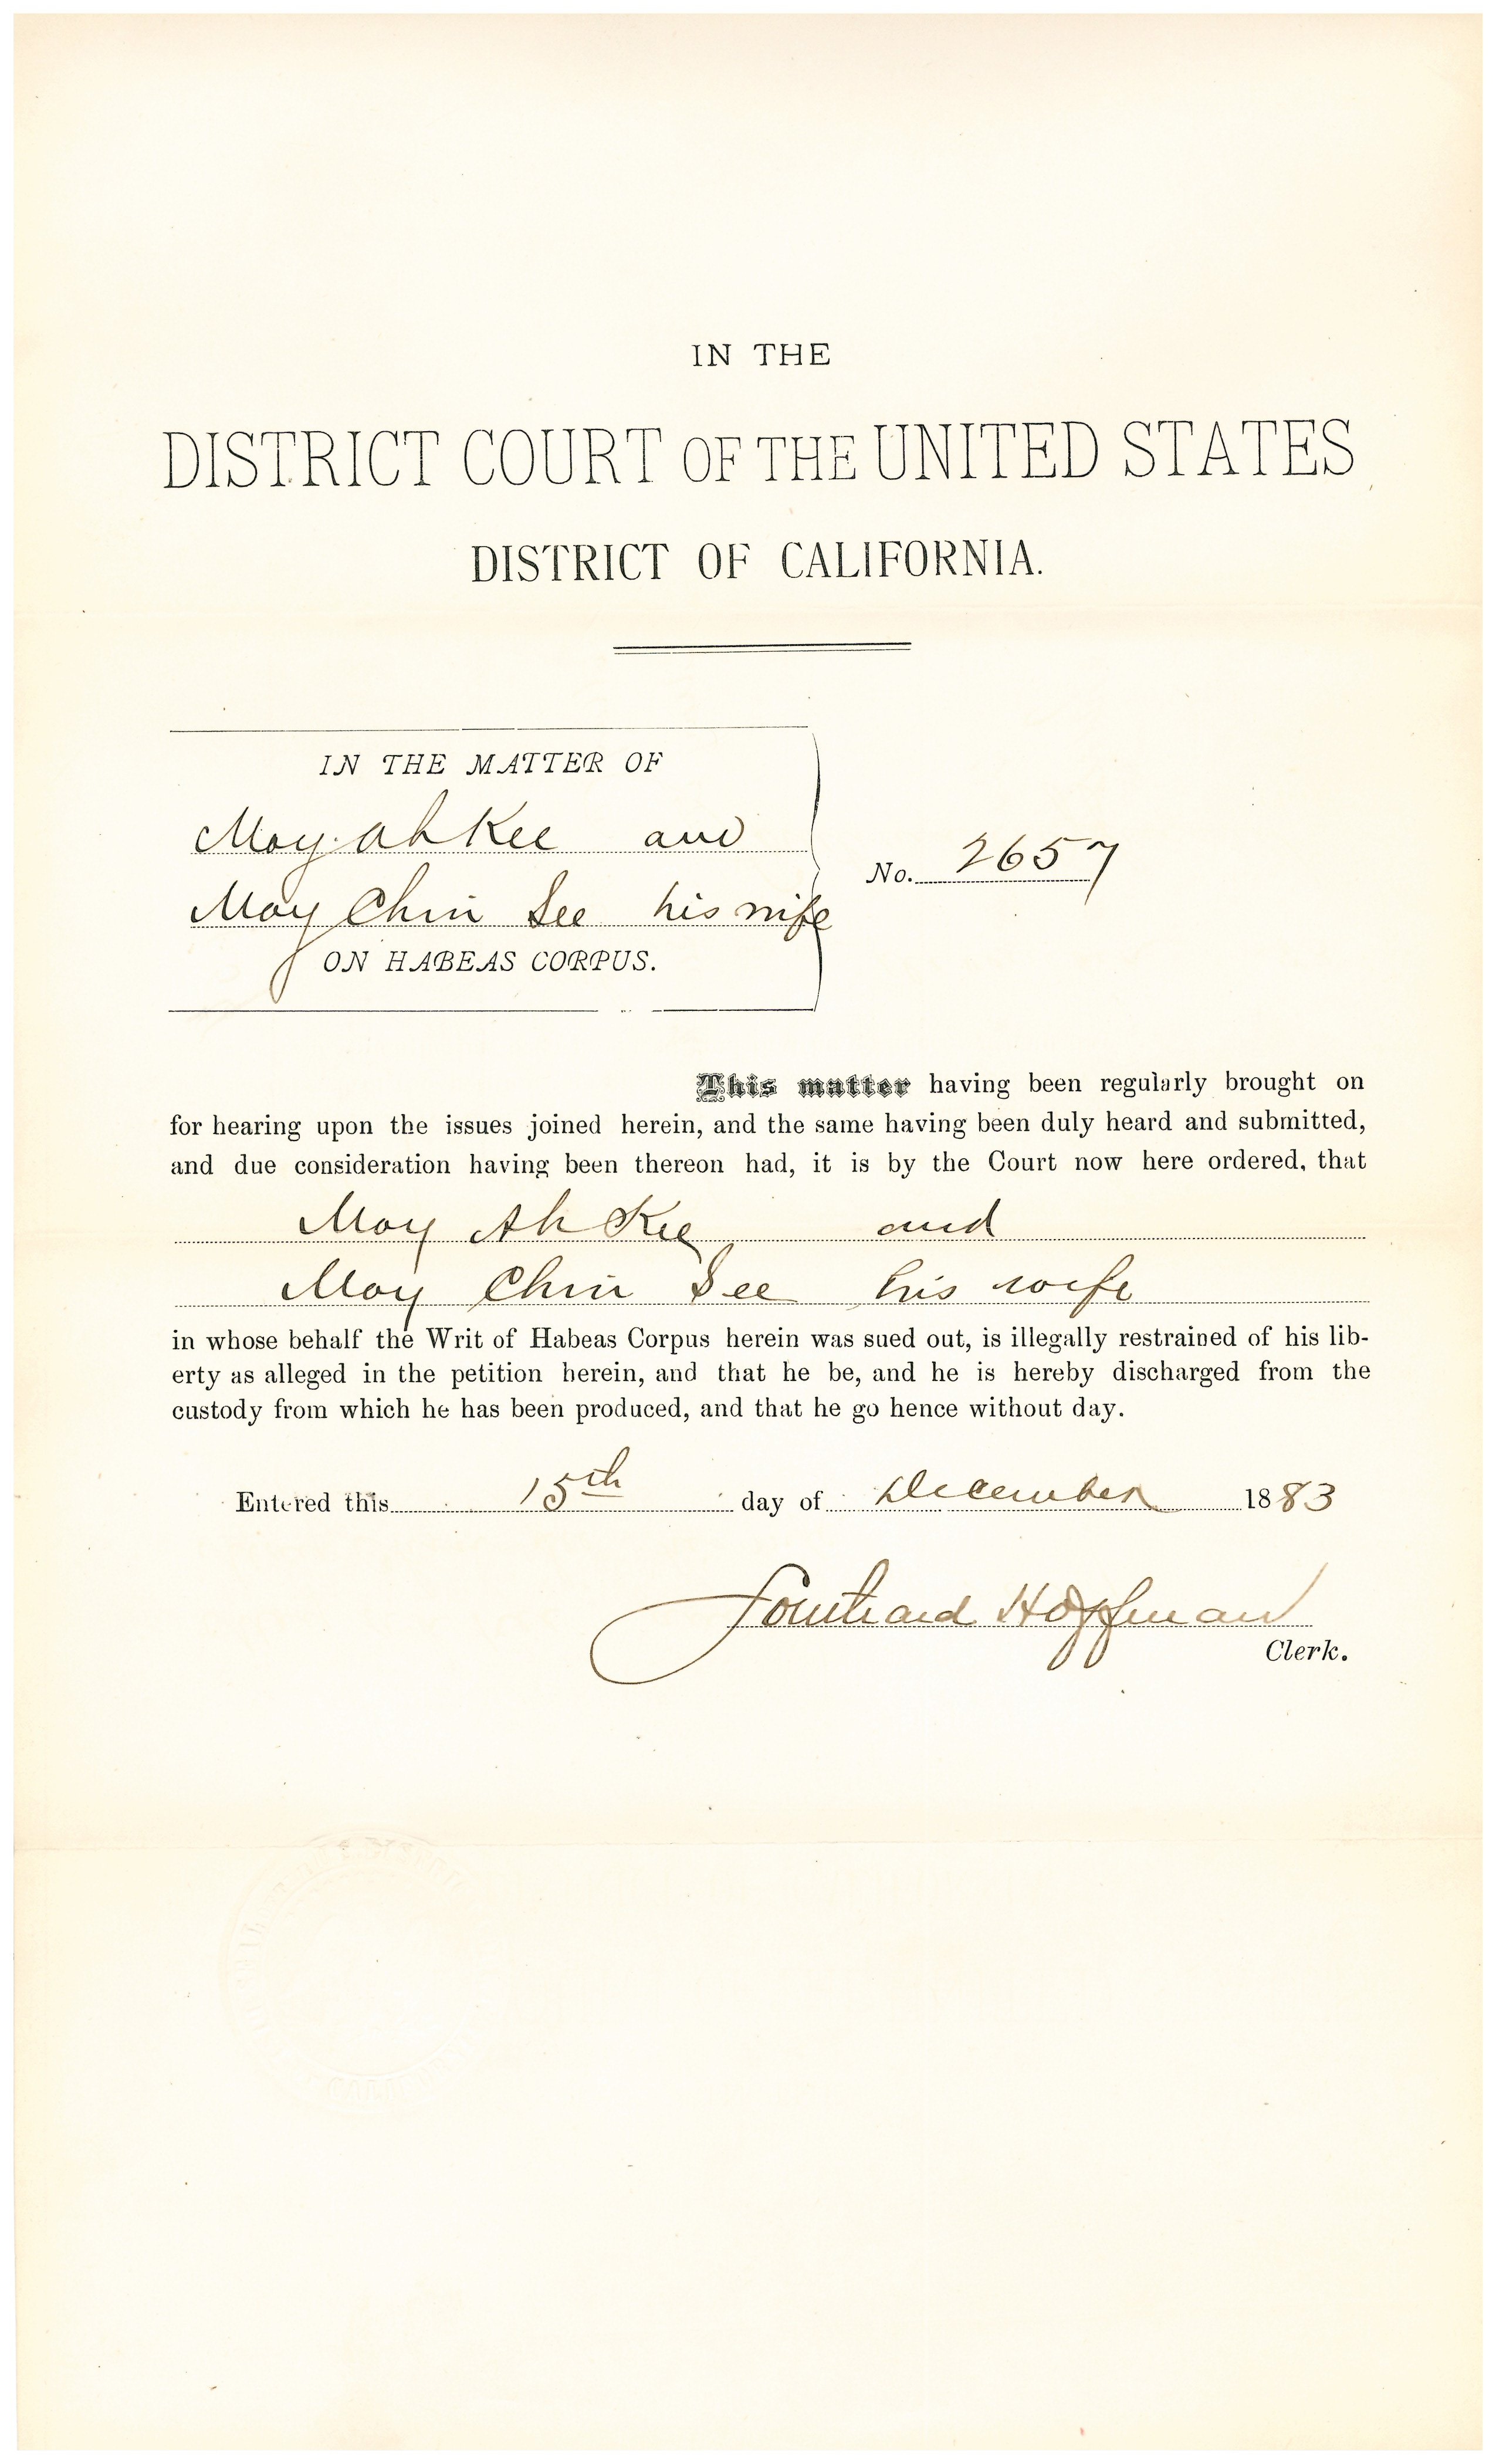 IN THE
DISTRICT COURT OF THE UNITED STATES
DISTRICT OF CALIFORNIA.
IN THE MATTER OF
Moy Ah Kee and
May Chin See his wife
ON HABEAS CORPUS.
No. 2657
This matter having been regularly brought on
for hearing upon the issues joined herein, and the same having been duly heard and submitted,
and due consideration having been thereon had, it is by the Court now here ordered, that
Moy Ah Kee and
May Chin See his wife
in whose behalf the Writ of Habeas Corpus herein was sued out, is illegally restrained of his lib-
erty as alleged in the petition herein, and that he be, and he is hereby discharged from the
custody from which he has been produced, and that he go hence without day.
Entered this 15th day of December 1883
Southard Hoffman
Clerk.